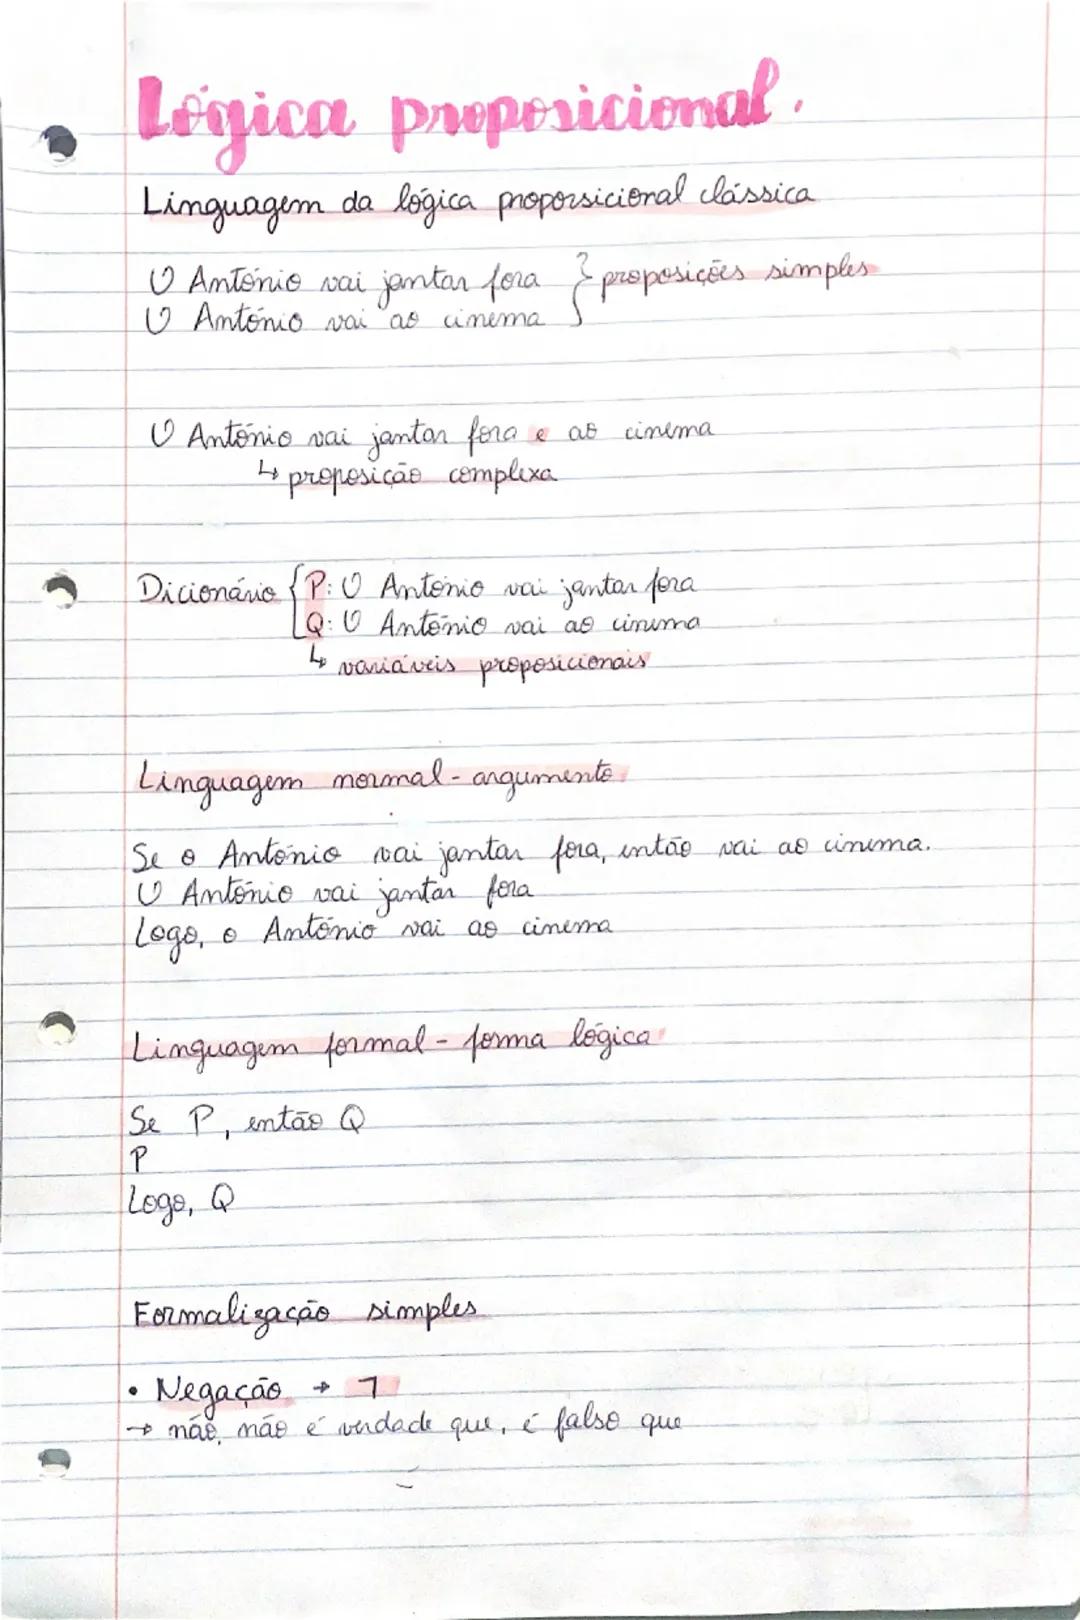 Lógica proposicional.
Linguagem da lógica proporsicional clássica
O António vai jantar fora } proposições simples
O António vai ao cinema
O António vai jantar fora e ao cinema
↳ proposição complexa
Dicionário { P: O António vai jantar fora
Q: O António vai ao cinema
↳ variáveis proposicionais
Linguagem normal - argumento
Se o António vai jantar fora, então vai ao cinema.
O António vai jantar fora
Logo, o António vai ao cinema
Linguagem formal - forma lógica
Se P, então Q
P
Logo, Q
Formalização simples
• Negação → ¬
→ não, não é verdade que, é falso que